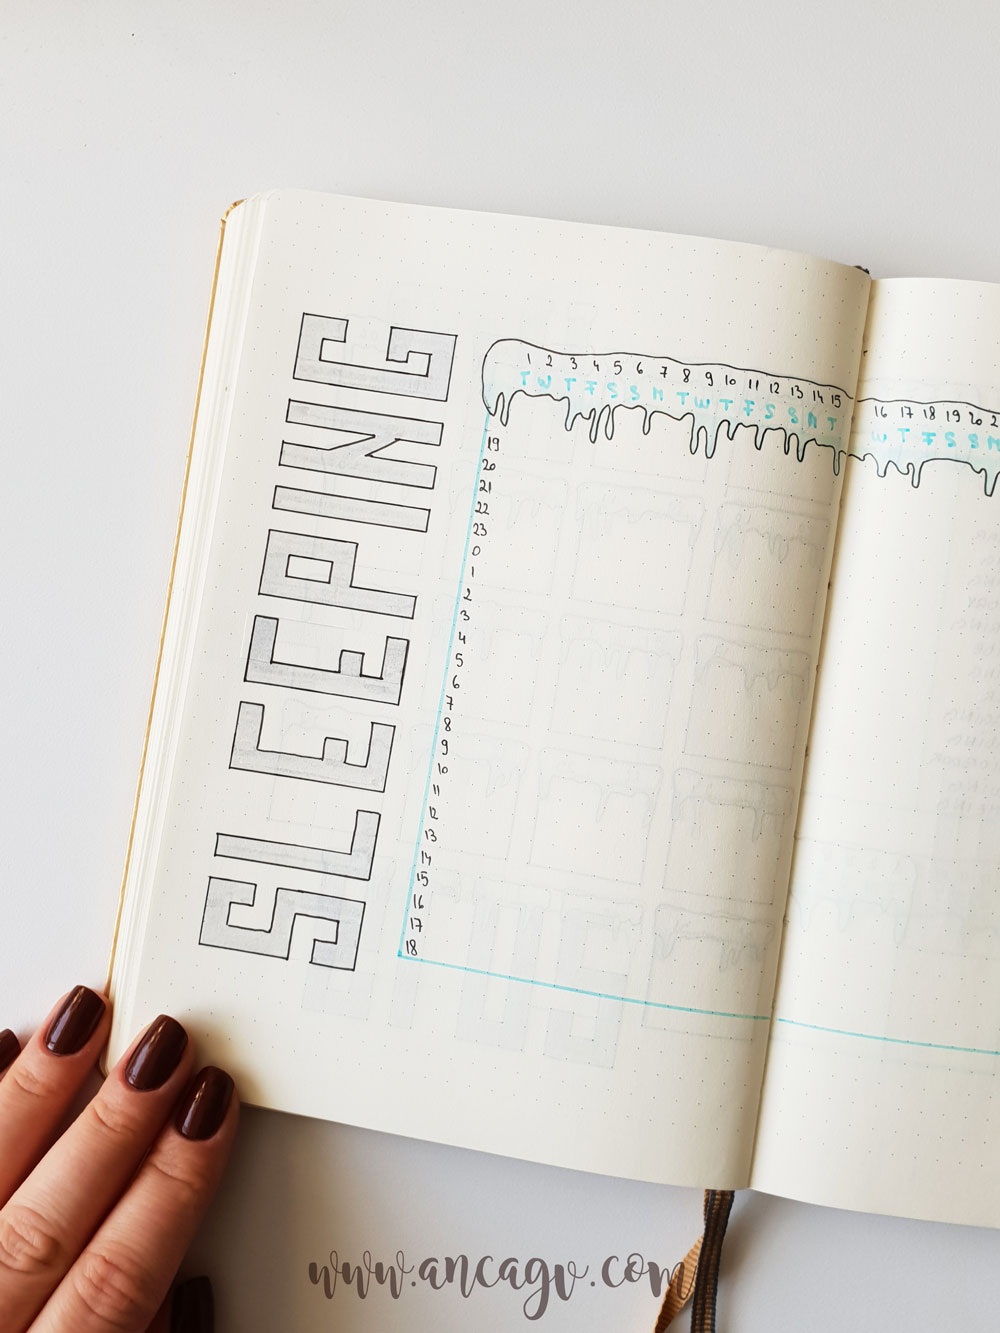 SLEEPING
1 2 3 4 5 6 7 8 9 10 11 12 13 14 15
T W T F S S M T W T F S S M T
16 17 18 19 20 2
W T F S S M
19
20
21
22
23
0
1
2
3
4
5
6
7
8
9
10
11
12
13
14
15
16
17
18
www.ancagv.com